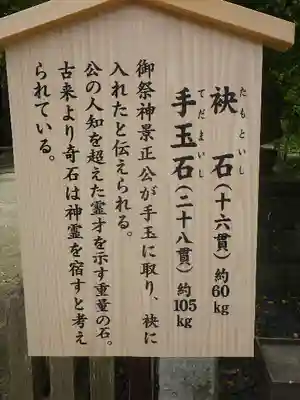 たもといし
袂石(十六貫)約60kg
てだまいし
手玉石(二十八貫)約105kg
御祭神景正公が手玉に取り、袂に
入れたと伝えられる。
公の人知を超えた霊才を示す重量の石。
古来より奇石は神霊を宿すと考え
られている。